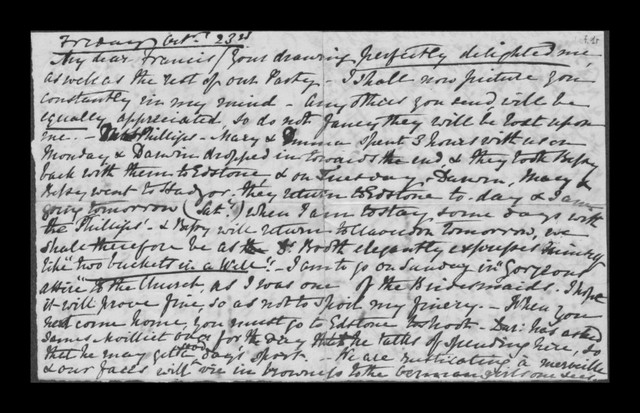 Friday Oct.r 23rd
My dear Francis / Your drawing perfectly delighted me,
as well as the rest of our Party – I shall now picture you
constantly in my mind – Any others you send, will be
equally appreciated, so do not fancy they will be lost upon
me. – Phillips – Mary & Emma spent 3 hours with us on
Monday & Darwin dropped in towards the end & they took Bessy
back with them to Edstone & on Tuesday, Darwin, Mary &
Bessy went to Hadzor. They return to Edstone to-day & I am
going tomorrow (Sat.y) when I am to stay some days with
the Phillips' – & Bessy will return to Claverdon tomorrow, we
shall therefore be as Booth elegantly expresses himself
like "two buckets in a Well". – I am to go on Sunday in "Gorgeous
attire" to the Church, as I was one of the Bridesmaids. I hope
it will prove fine, so as not to spoil my finery. – When you
next come home, you must go to Edstone to shoot – Dar: has asked
James Moilliet over for the day he talks of spending here, so
that he may get a good day's sport. – We are rusticating à merveille
& our faces will vie in brownness to the German